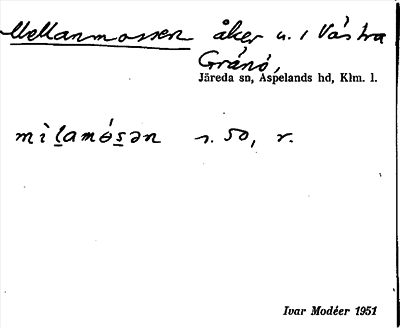 Mellanmossen åker u. / Västra
Gränö,
Järeda sn, Aspelands hd, Klm. l.
mìlamósən s. 50, r.
Ivar Modéer 1951